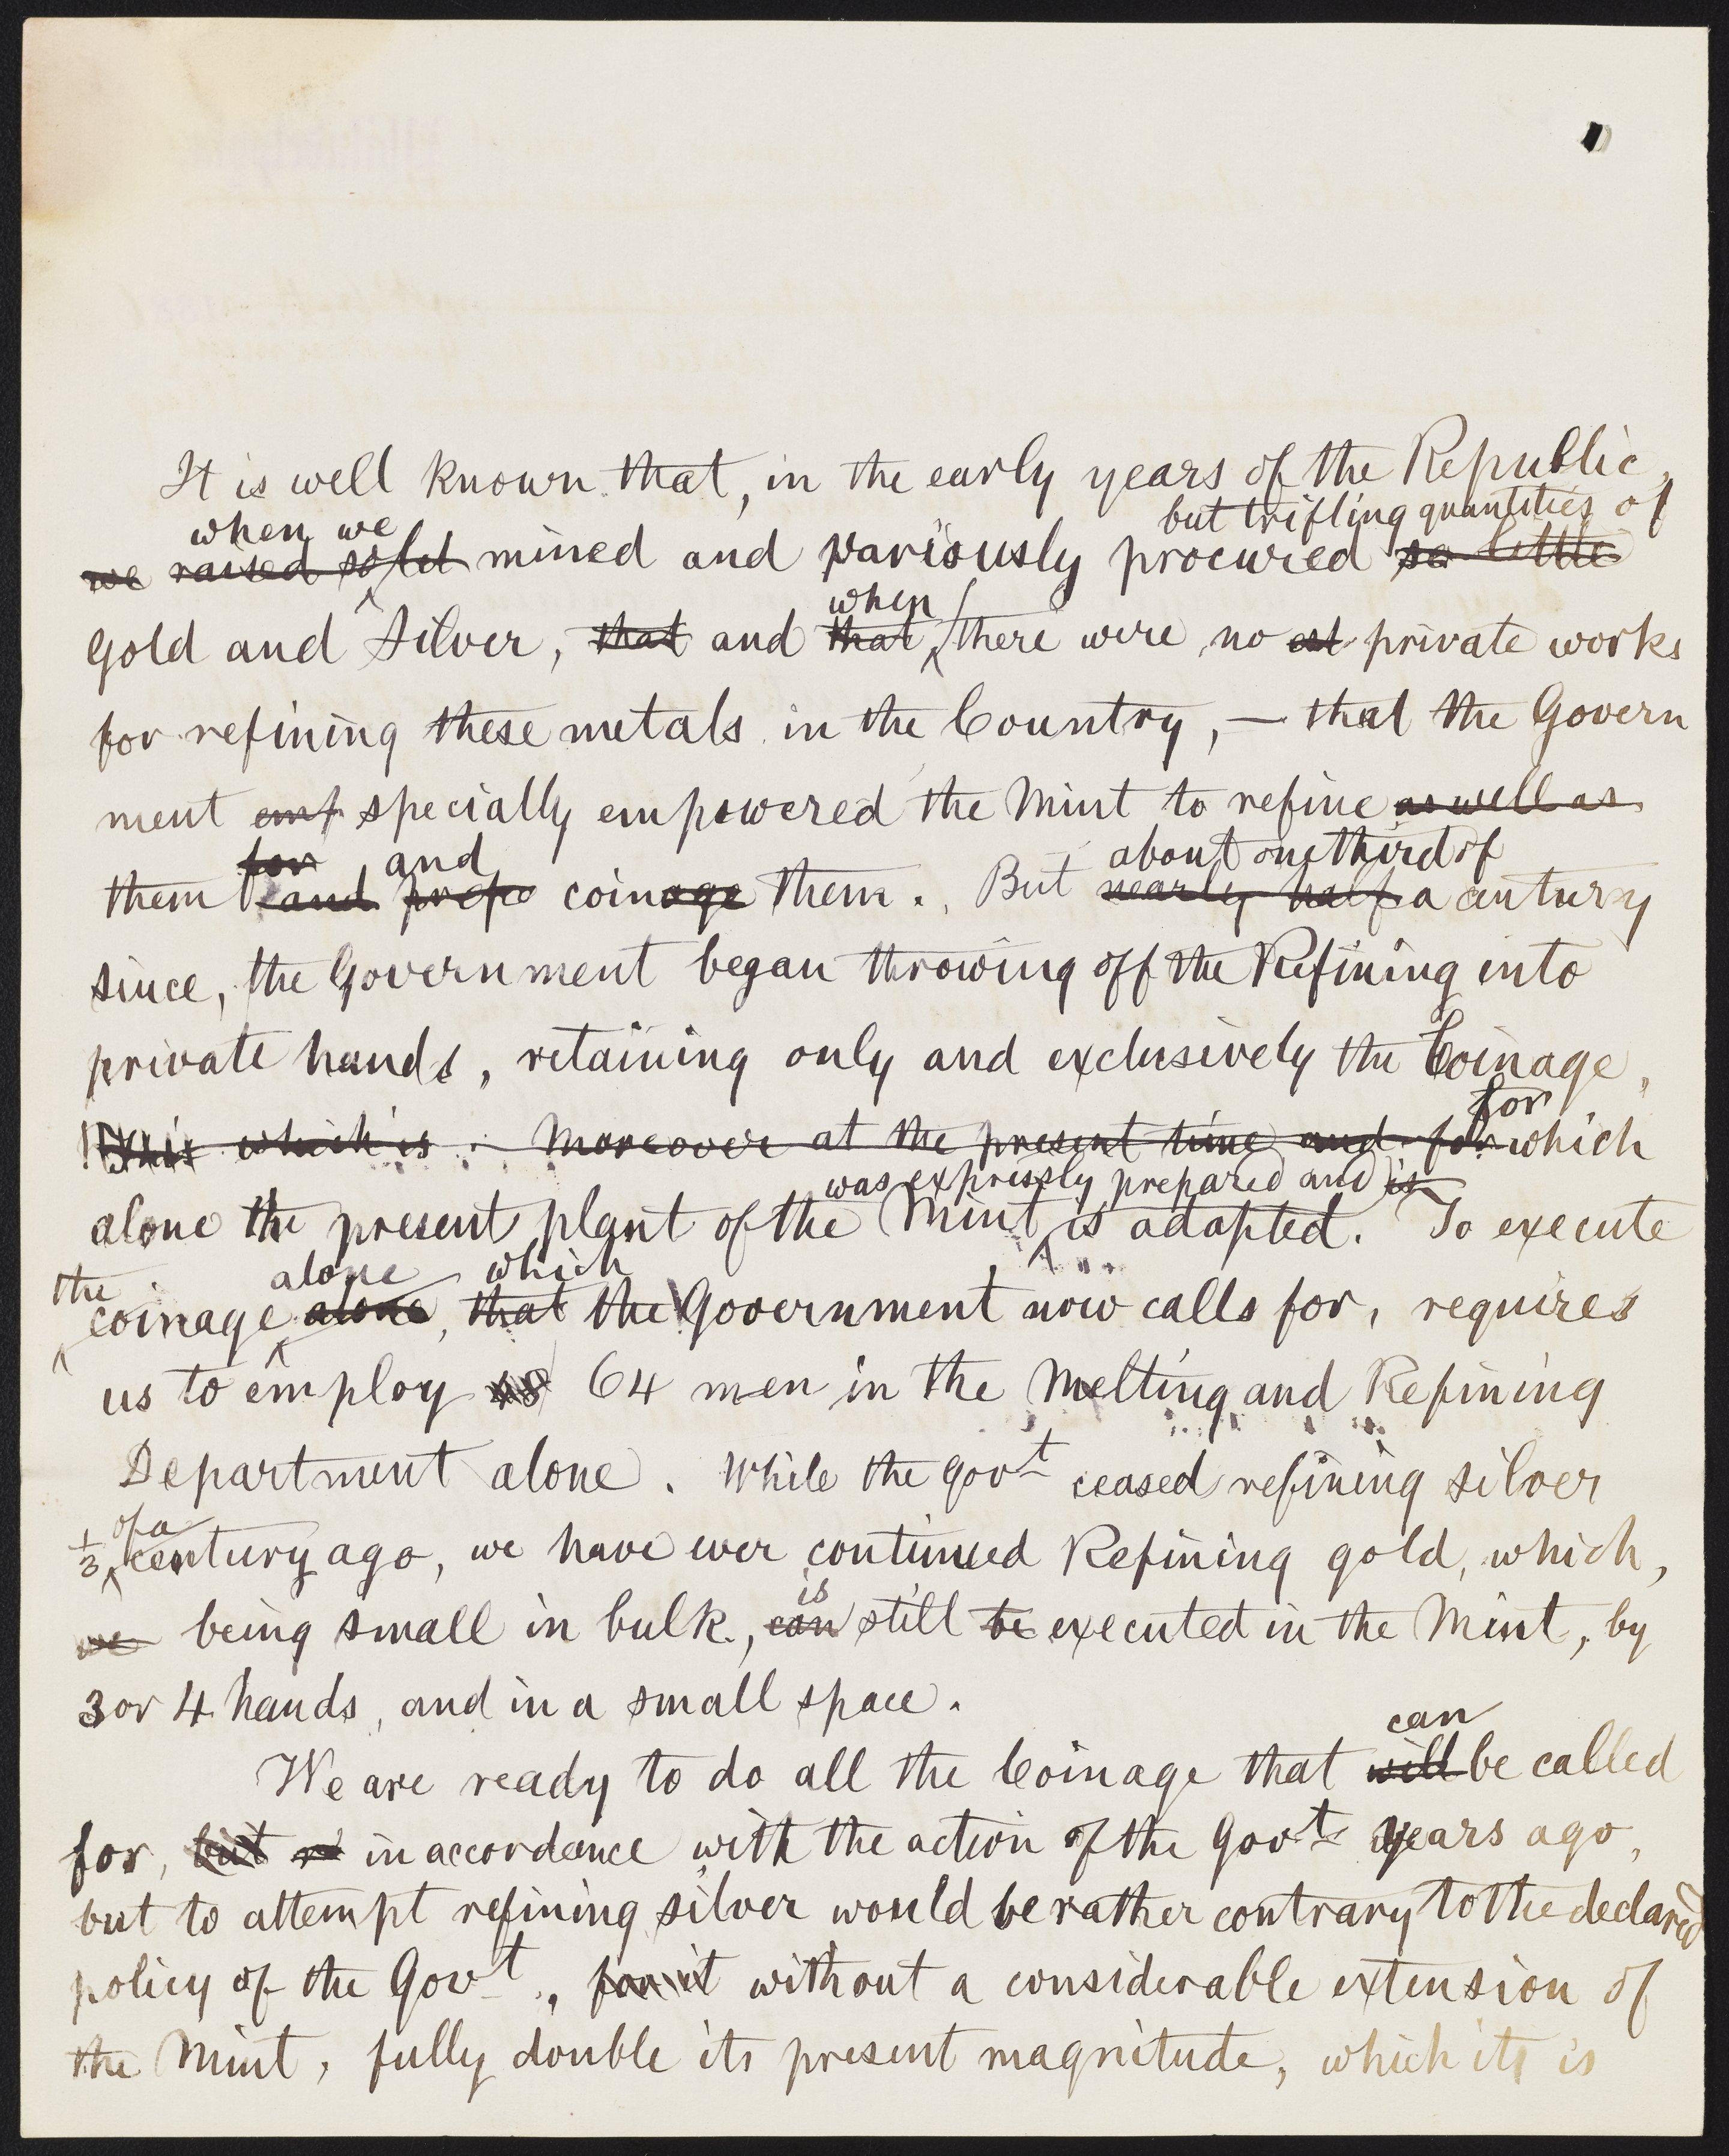 It is well known that, in the early years of the Republic,
when we but trifling quantities of
we raised so mined and variously procured so little
when
gold and Silver, that and that there were no est private works
for refining these metals in the Country, — that the Govern
ment emp specially empowered the Mint to refine as well as
for and about one third of
them and prepe coinage them. But nearly half a century
since, the Government began throwing off the Refining into
private hands, retaining only and exclusively the Coinage,
for
This which is. Moreover at the present time and for which
was expressly prepared and is
alone the present plant of the Mint is adapted. To execute
the alone which
coinage alone, that the Government now calls for, requires
us to employ 48 64 men in the Melting and Refining
Department alone. While the Govt ceased refining silver
of a
1/3 century ago, we have ever continued Refining gold, which,
is
we being small in bulk, can still be executed in the Mint, by
3 or 4 hands, and in a small space.
can
We are ready to do all the Coinage that will be called
for, but in accordance with the action of the Govt years ago,
but to attempt refining silver would be rather contrary to the declared
policy of the Govt, for it without a considerable extension of
the Mint, fully double its present magnitude, which its is